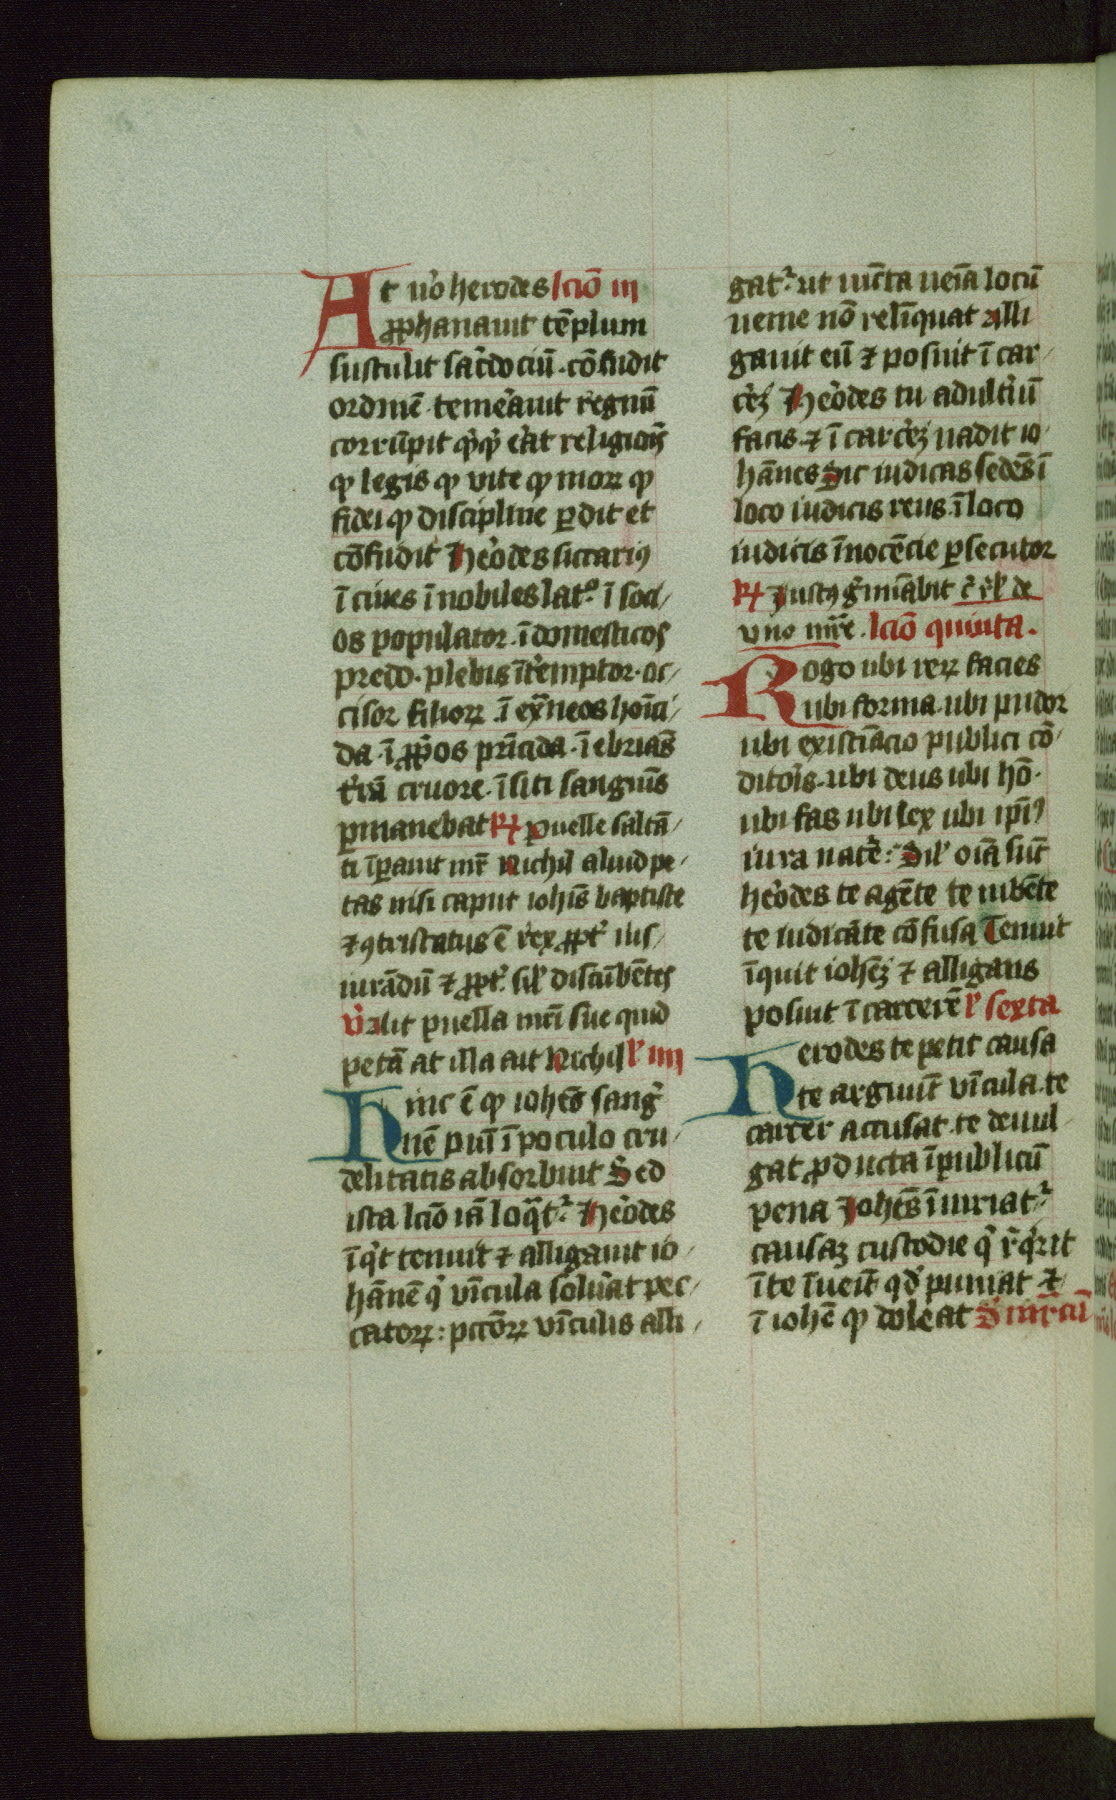 At v̾o herodes lcio̅ iii
ꝓphanauit te̅plum
sustulit sac̾dociu̅ · co̅fudit
ordine̅ · teme̾auit regnu̅
corru̅pit q̾q̾ e̾at religio̅is
ꝙ legis ꝙ vite ꝙ moꝝ ꝙ
fidei ꝙ discipline ꝑdit et
co̅fudit He̾odes siccariꝯ
i̅ ciues i̅ nobiles latº i̅ soci/
os populator · i̅ domesticos
predo · plebis i̅t̾emptor · oc/
cisor filioꝝ · i̅ ext̾neos ho̅ici/
da · i̅ ꝓp̾os pr̅icida · i̅ ebrias̅
t̾ra̅ cruore · i̅ siti sangui̅s
ꝑmanebat ℟ Puelle salta̅/
ti i̅ꝑauit mr̅ Nichil aliud pe/
tas nisi caput ioh̅is baptiste
⁊ ꝯtristatus e̅ rex ꝓpt̾ ius/
iura̅du̅ ⁊ ꝓpt̾ sil̾ discu̅be̅tes
V̾ Alit puella mr̅i sue quid
peta̅ at illa ait Nichil l̾ iiii
Hinc e̅ ꝙ ioh̅es sang̾
ine̅ pui̅ i̅ poculo cru/
delitatis absorbuit Sed
ista lcio̅ ia̅ loq̅t᷑ He̾odes
i̅q̾t tenuit ⁊ alligauit io/
ha̅ne̅ q̾ vi̅cula soluat pec/
catoꝝ : pcto̅ꝝ vi̅culis alli/
gat᷑ ut vic̅ta ue̅ia locu̅
uenie no̅ reli̅quat Alli
gauit eu̅ ⁊ posuit i̅ car/
ce̾ꝫ He̾odes tu adult̾iu̅
facis · ⁊ i̅ carce̾ꝫ uadit io/
ha̅nes Sic iudicas sedes̅ i̅
loco iudicis reus · i̅ loco
iudicis i̅noce̅cie ꝑsecutor
℟ Justꝯ g̾mi̅abit c̾ r̾l̾ de
vno mr̅e · lcio̅ quinta ·
Rogo ubi reꝝ facies
ubi forma · ubi pudor
ubi existi̅acio publici co̅/
dito̾is · ubi deus ubi ho̅ ·
ubi fas ubi lex ubi ip̅iꝯ
iura nat̾e : Sil̾ oi̅a su̅t
he̾odes te age̅te te iube̅te
te iudica̅te co̅fusa Tenuit
i̅quit ioh̅eꝫ ⁊ alligans
posuit i̅ carcere̅ l̾ sexta
Herodes te petit causa
te arguu̅t vi̅cula · te
carcer accusat · te deuul/
gat ꝓducta i̅ publicu̅
pena Joh̅es i̅iuriat᷑
causaꝫ custodie q̾ r̾q̾rit
i̅ te i̅ueit̅ qd̾ puniat ⁊
i̅ iohe̅ ꝙ doleat